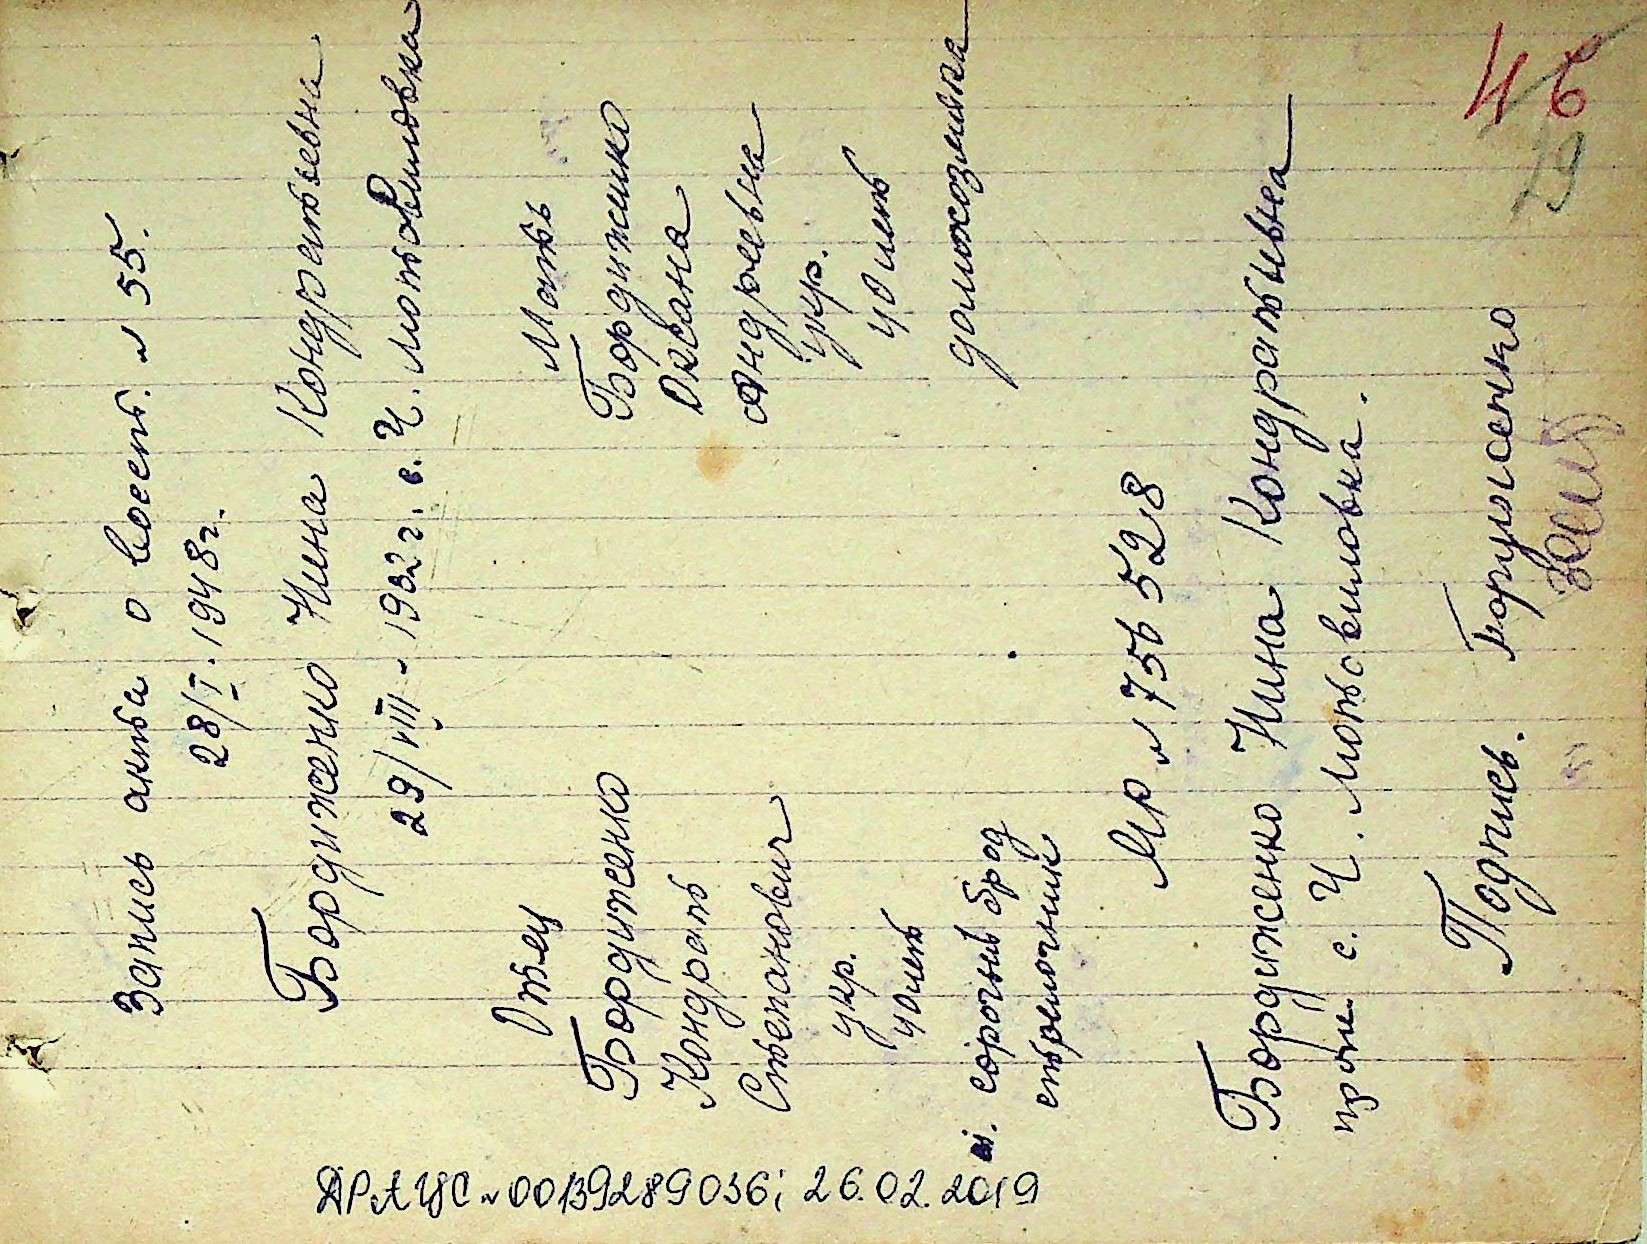 46
19
Запись акта о восст. N 55.
28/I. 1948г.
Бордиженко Нина Кондратьевна
29/VIII - 1932 г. с. Ч. Мотовиловка
Отец
Бордиженко
Кондрат
Степанович
укр.
40 лет
сорочий брод
стрелочник
Мать
Бордиженко
Оксана
Андреевна
укр.
40 лет
домохозяйка
N 756528
Бордиженко Нина Кондратьевна
прож. с. Ч. Мотовиловка.
Подпись. Борисенко
ДРАЦС N 00139289036; 26.02.2019